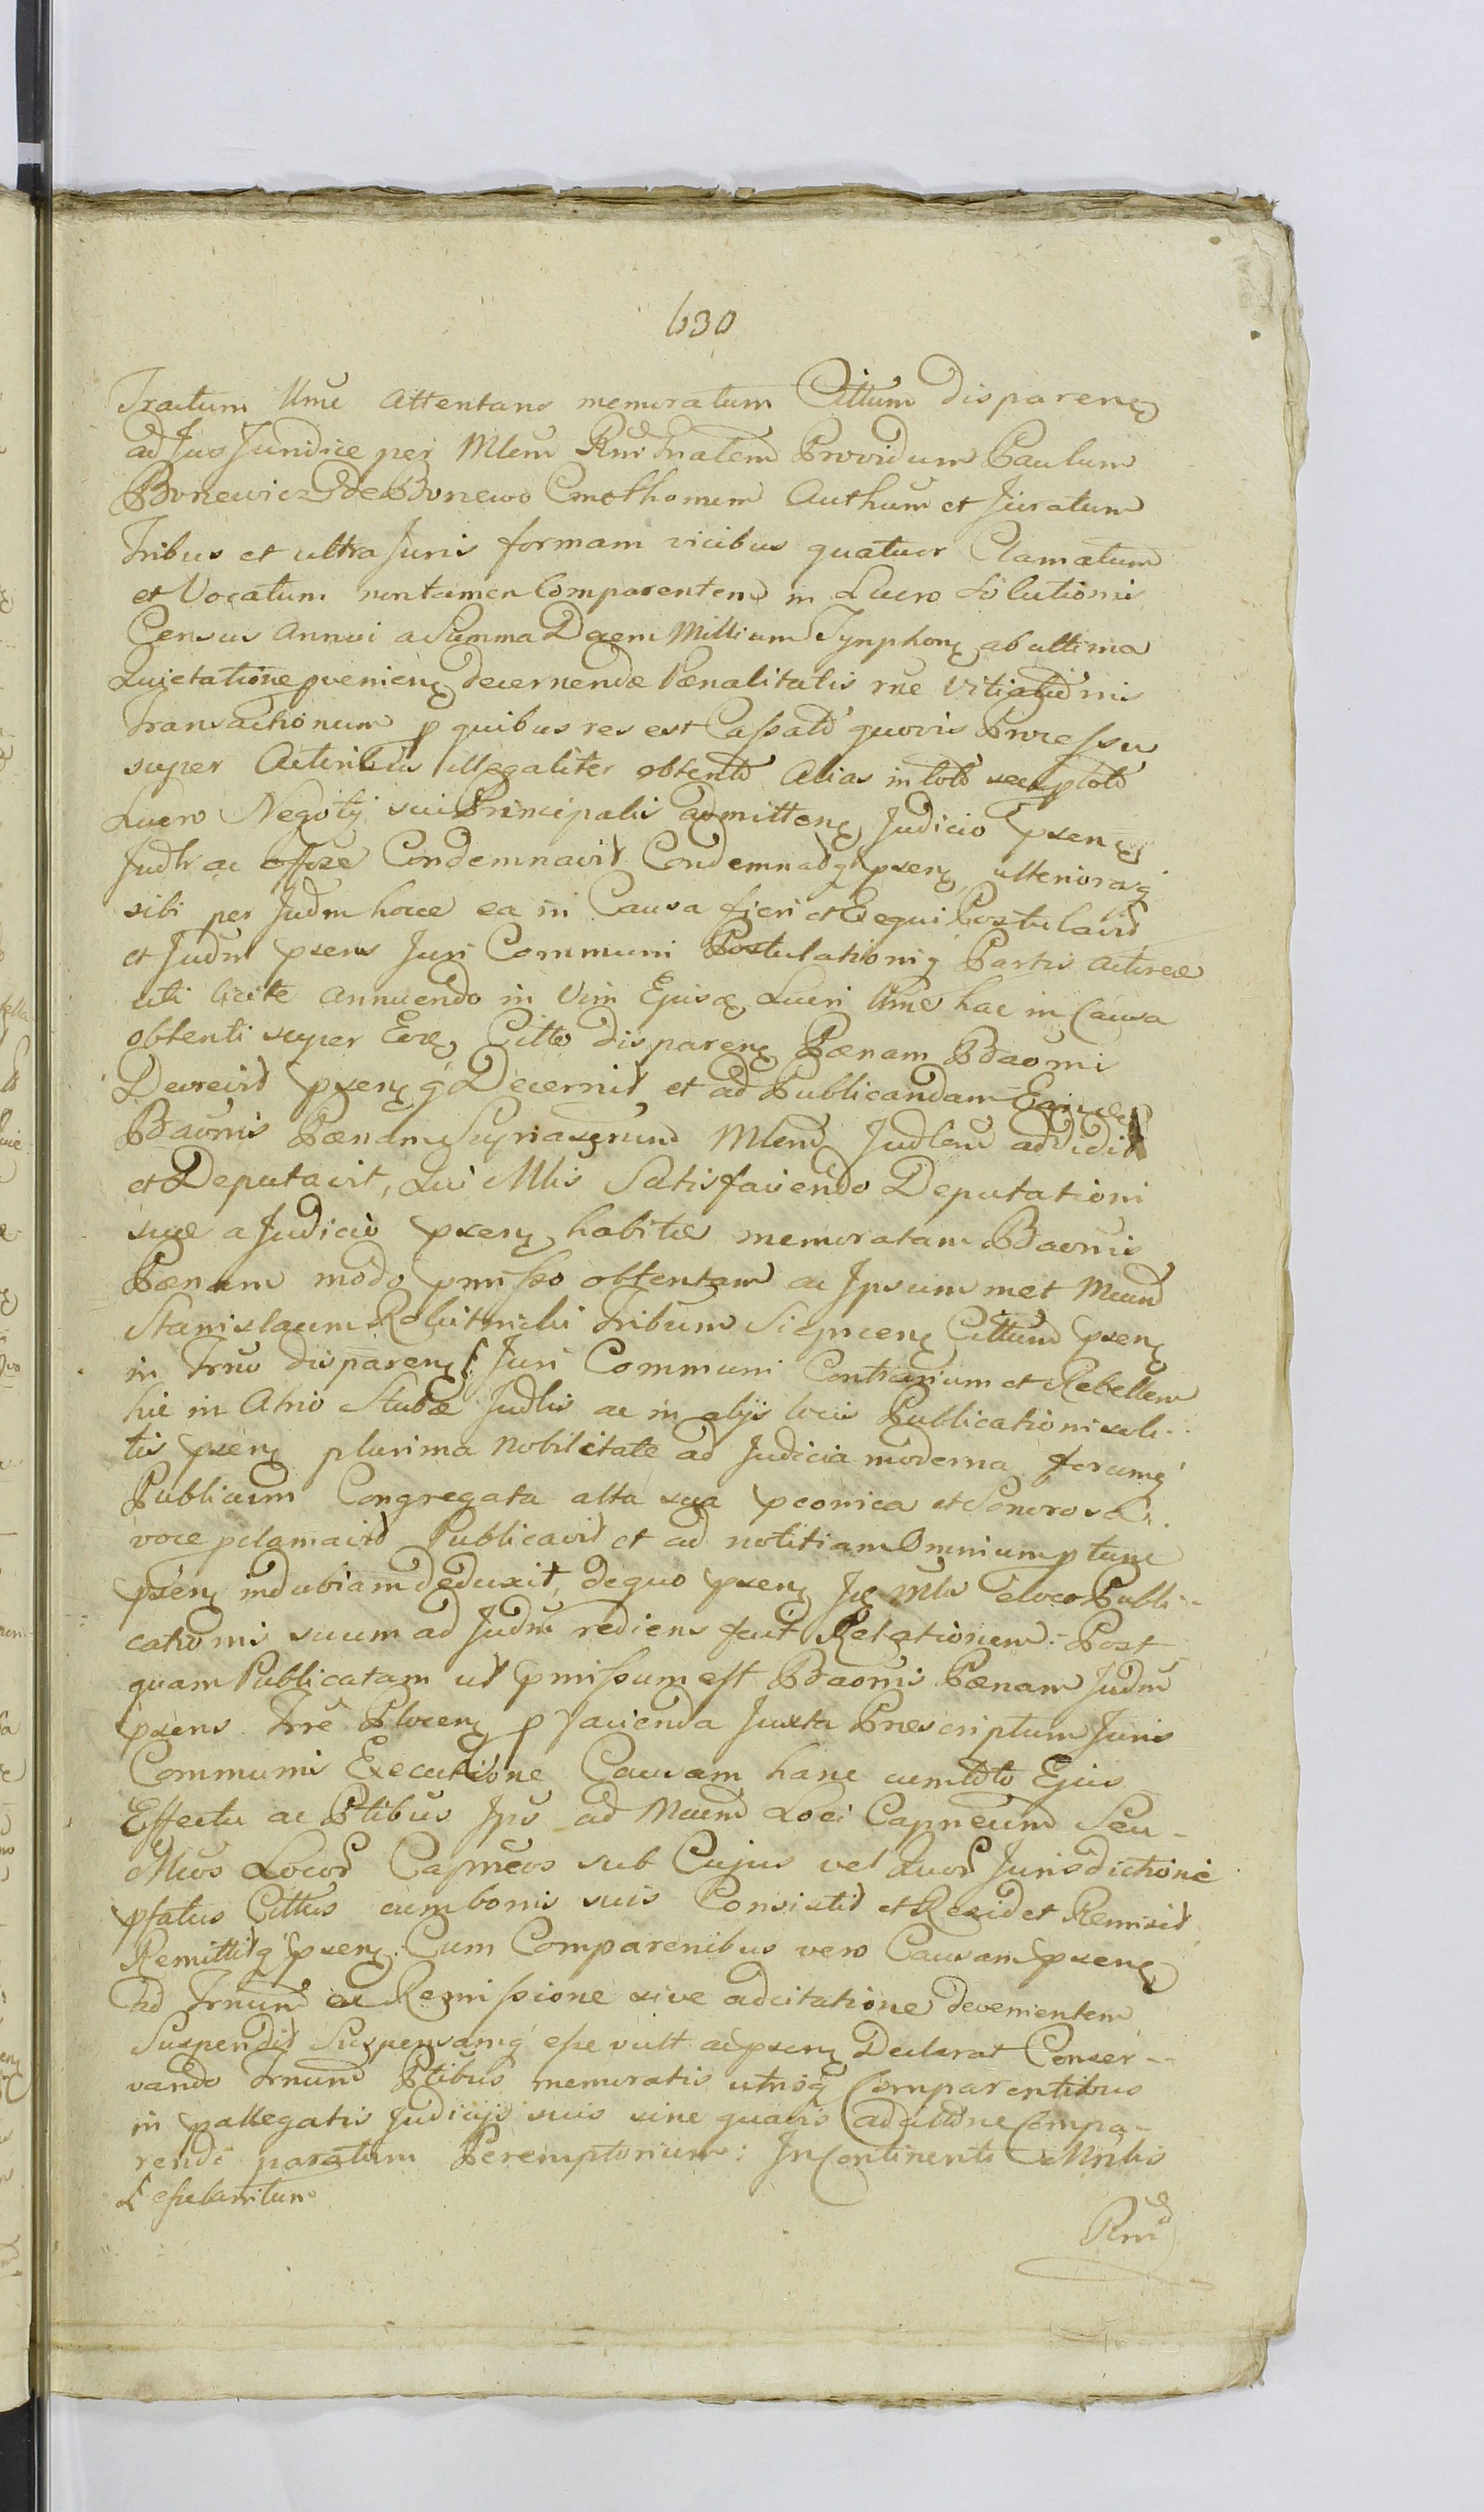 630
Tractum Ume Attentans memoratum Cittum disparen
ad Jus Juridice per Mlem Rni Trnalem Providum Paulum
Borewicz de Borewo Cmethonem Authum et Juratum
Tribus et ultra Juris formam vicibus quatuor Clamatum
et Vocatum non tamen Comparentem in Lucro Solutionis
Census Annui a Summa Decem Millium Tynphon ab ultima
Quietatione pvenien decernendæ Pœnalitatis rne Vitiatidnis
Transactionum p quibus res est Cassatd quovis Processu
super Actoribus illegaliter obtentd Alias in totd
Lucro Negotÿ sui Principalis admitten Judicio psen
Judlr ac Condemnavit Condemnatq psen ulterioraq
sibi per Judm hocce ea in Causa fieri et Exequi Postulavit
et Judm psens Juri Communi Postulationiq Partis Actoreæ
uti licite Annuendo in Vim Ejusq Lucri Ume hac in Causa
obtenti super Eoq Citto disparen Pœnam Baomi
Decrevit psenq Decernit et ad Publicandam Eqndem
Baonis Pœnam Suprascrum Mlem Judlem addidit
et Deputavit, Qui Mlis Satisfaciendo Deputationi
suæ a Judicio psen habitæ memoratam Baonis
Pœnam modo pmisso obtentam ac Ipsummet Mcum
Stanislaum Rokitnicki Tribum Siepncen Cittum psen
in Trno disparen Juri Communi Contrarium et Rebellem
hic in Atrio Stubæ Judlis ac in alÿs locis Publicationi soli-
tis psen plurima Nobilitate ad Judicia moderna forumq
Publicum Congregata alta sua pconica et Sonorosa
voce pclamavit Publicavit et ad notitiam Omnium p tunc
psen indubiam deduxit, de quo psen Je Mlis e loco Publi-
cationis suum ad Judm rediens fecit Relationem. Post
quam Publicatam ut pmissum est Baonis Pœnam Judm
psens Trre Plocen p facienda Juxta Præscriptum Juris
Communis Executione Causam hanc cum toto Ejus
Effectu ac Ptibus Ips ad Mcum Loci Capneum Seu-
Mcos Locor Capneos sub Cujus vel Quor Jurisdictione
pfatus Cittus cum bonis suis Consistit et Residet Remisit
Remittitq psen. Cum Comparenibus vero Causam psen
ad Trnum ex Remissione sive adcitatione devenientem
Suspendit Suspensamq esse vult ac psen Declarat Conser-
vando Trnum Ptibus memoratis utrisq Comparentibus
in pallegatis Judicÿs suis sine quavis adcittone Compa-
rendi paratum Peremptorium: In Continenti Mnlis
L

Rnid